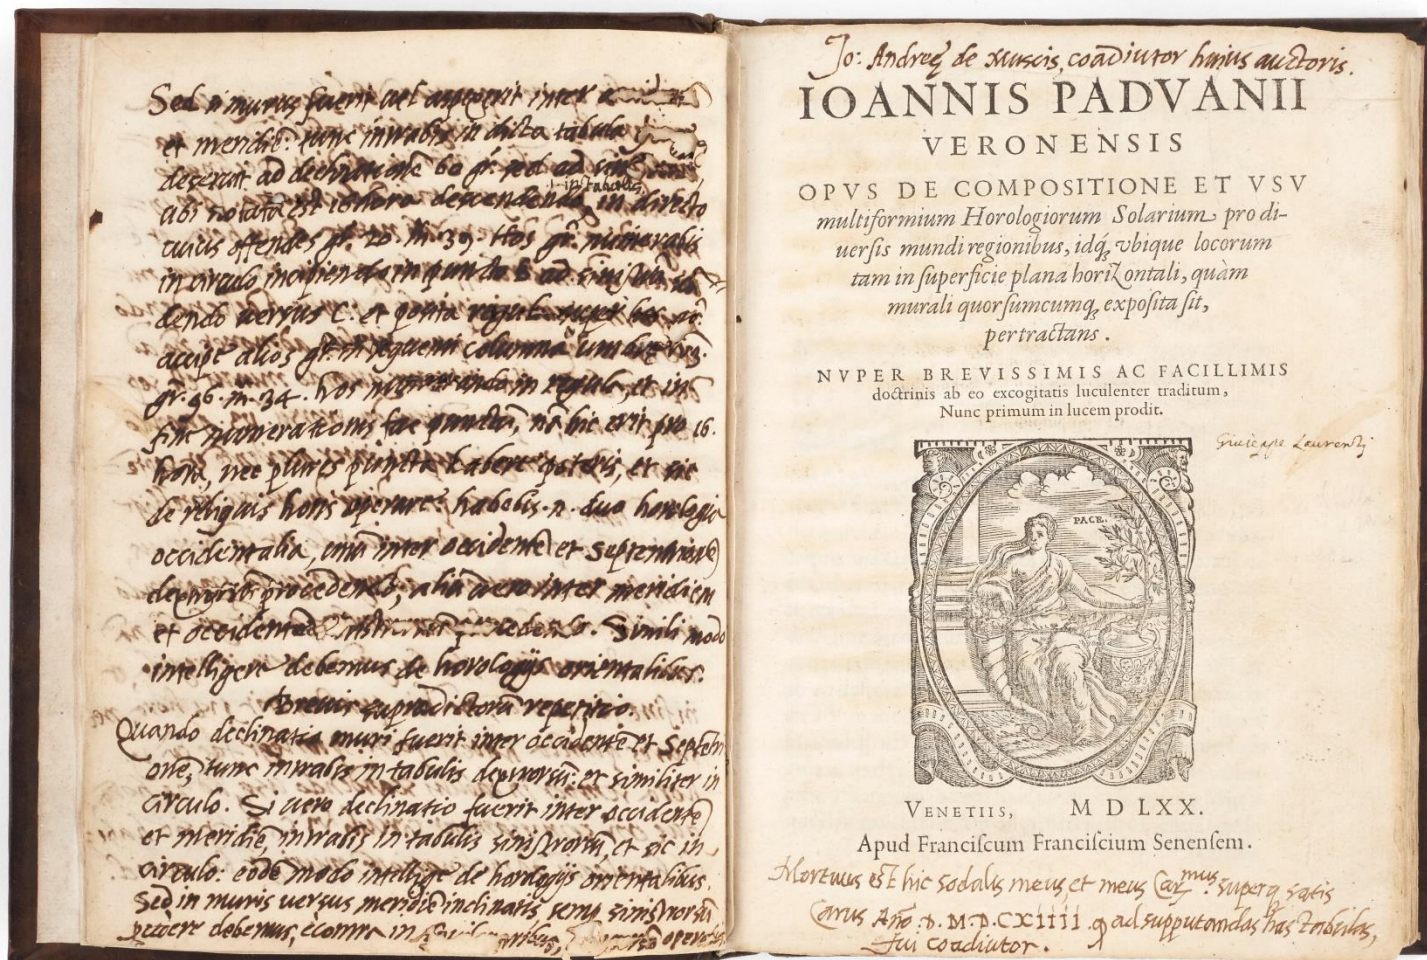 Sed si murus fuerit vel aspexerit inter
et meridiē: tunc intrabis in dicta tabula
ad declinationē 60 gr. sed ad
in tabulis,
ubi notata est 16 hora descendendo in directo
cuius offendes gr. 20. m. 39. Hos gr. numerabis
in circulo incipiendo in puncto B ad
dendo versus C: et posita regula super hos
accipe alios gr. in sequenti columna
gr. 56. m. 34. hos numerando in regula, et in
fine numerationis fac punctū, nā hic erit pro 16.
hora, nec plures puncta habere poteris, et sic
de reliquis horis operare: habebis .n. duo horologia
occidentalia, unū inter occidentē et Septentrionē
procedendo, aliū vero inter meridiem
et occidentē. Simili modo
intelligere debemus de horologijs orientalibus.
Brevis supradictorū repetitio.
Quando declinatio muri fuerit inter occidentē et Septētri
onē, tunc intrabis in tabulis dextrorsū: et similiter in
circulo. Si vero declinatio fuerit inter occidentē
et meridiē, intrabis in tabulis sinistrorsū, et sic in
circulo: eodē modo intellige de horologijs orientalibus.
Sed in muris versus meridiē inclinatis, semp sinistrorsū
debemus, in
Jo: Andreę de Muscis, coadiutor huius auctoris.
IOANNIS PADVANII
VERONENSIS
OPVS DE COMPOSITIONE ET VSV
multiformium Horologiorum Solarium pro di-
uersis mundi regionibus, idq́; vbique locorum
tam in superficie plana horizontali, quàm
murali quorsumcumq; exposita sit,
pertractans.
NVPER BREVISSIMIS AC FACILLIMIS
doctrinis ab eo excogitatis luculenter traditum,
Nunc primum in lucem prodit.
Giuseppe Laurentij
PACE.
VENETIIS, M D LXX.
Apud Franciscum Franciscium Senensem.
Mortuus est hic sodalis meus et meus Carmus superq satis
Carus Año D. M.D.CXIIII q ad supputandas has tabulas,
fui coadiutor.